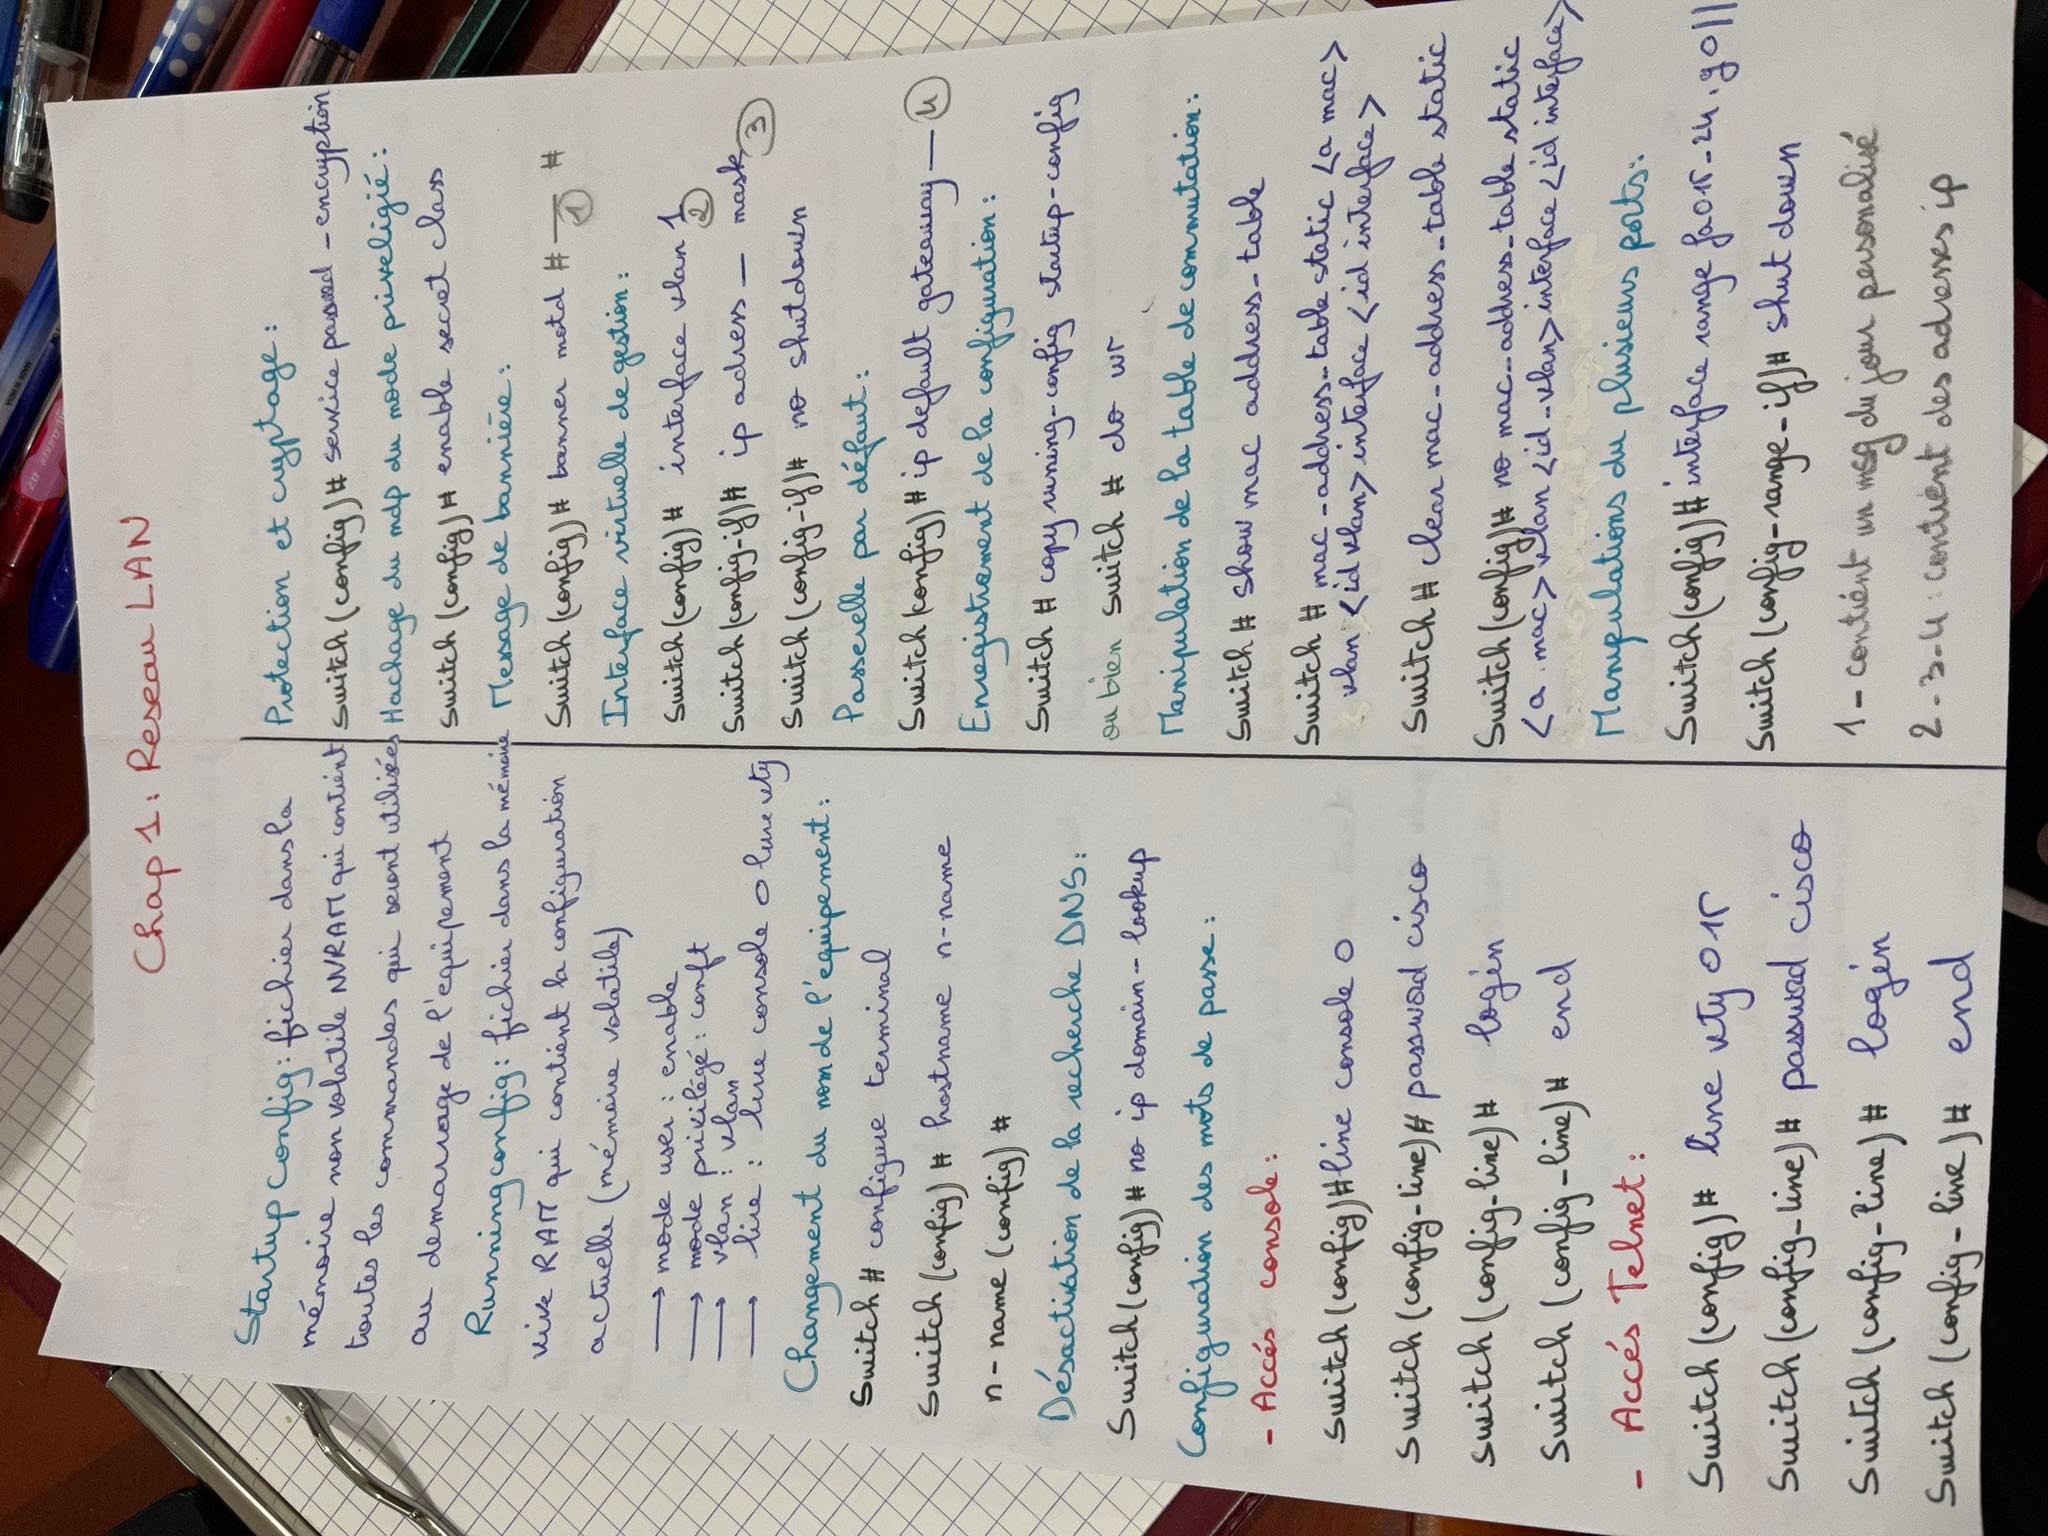 Chap 1 : Reseau LAN
Startup config : fichier dans la
mémoire non volatile NVRAM qui contient
toutes les commandes qui seront utilisées
au demarrage de l'équipement
Running config : fichier dans la mémoire
vive RAM qui contient la configuration
actuelle (mémoire volatile)
→ mode user : enable
→ mode privilégé : conft
→ vlan : vlan
→ line : line console 0 line vty
Changement du nom de l'équipement :
Switch # configure terminal
Switch (config) # hostname n-name
n-name (config) #
Désactivation de la recherche DNS :
Switch (config) # no ip domain-lookup
Configuration des mots de passe :
- Accés console :
Switch (config) # line console 0
Switch (config-line) # password cisco
Switch (config-line) # login
Switch (config-line) # end
- Accés Telnet :
Switch (config) # line vty 0 15
Switch (config-line) # password cisco
Switch (config-line) # login
Switch (config-line) # end
Protection et cryptage :
Switch (config) # service password-encryption
Hachage du mdp du mode priveligié :
Switch (config) # enable secret class
Message de bannière :
Switch (config) # banner motd # — #
1
Interface virtuelle de gestion :
Switch (config) # interface vlan 1
Switch (config-if) # ip adress — mask
2 3
Switch (config-if) # no shutdown
Passerelle par défaut :
Switch (config) # ip default gateaway — 4
Enregistrement de la configuration :
Switch # copy runing-config startup-config
ou bien Switch # do wr
Manipulation de la table de commutation :
Switch # show mac address-table
Switch # mac-address-table static <a mac>
vlan <id vlan> interface <id interface>
Switch # clear mac-address-table static
Switch (config) # no mac-address-table static
<a.mac> vlan <id-vlan> interface <id interface>
Manipulations du plusieurs ports :
Switch (config) # interface range fa015-24, g0||
Switch (config-range-if) # shut down
1 - contient un msg du jour personalisé
2-3-4 : contient des adresses ip